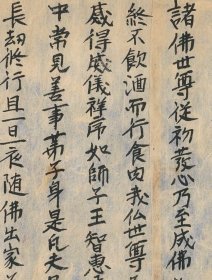 諸佛世尊從初發心乃至成佛
終不飲酒而行食肉我仏世尊
感得威儀祥序如師子王智惠
中常見善事弟子身是凡夫
長劫修行且一日一夜随佛出家